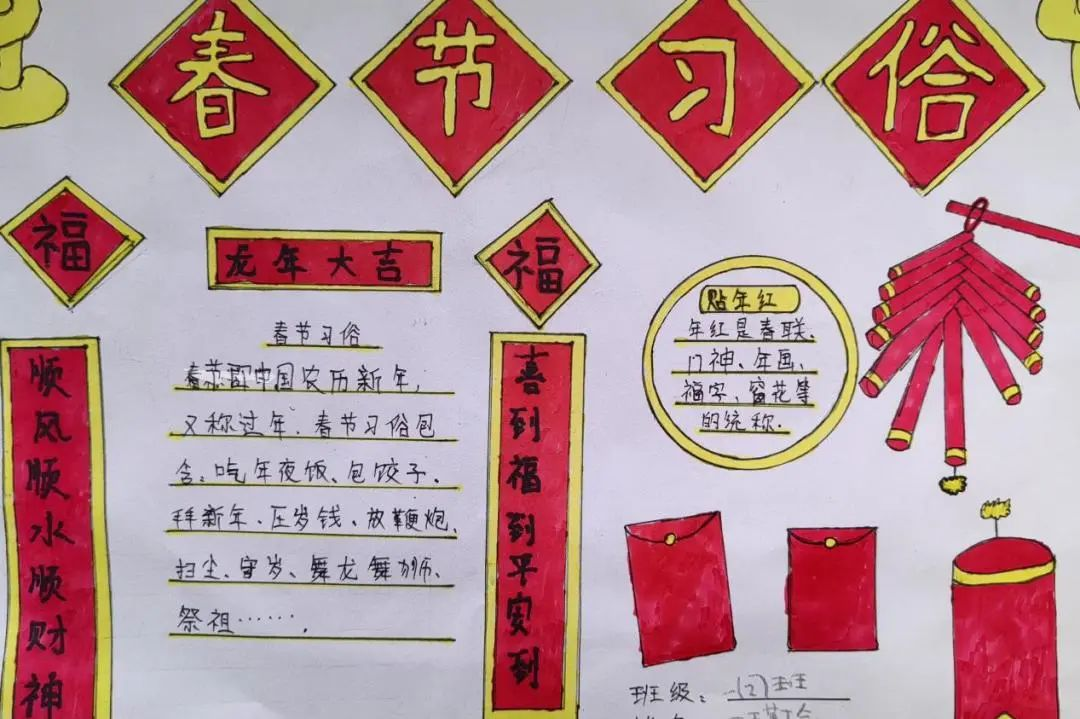 春节习俗
福
龙年大吉
福
顺风顺水顺财神
春节习俗
中国农历新年,
又称过年、春节习俗包
含:吃年夜饭、包饺子、
拜新年、压岁钱、放鞭炮、
扫尘、守岁、舞龙舞狮、
祭祖…….
喜到福到平安到
贴年红
年红是春联、
门神、年画、
福字、窗花等
的统称.
班级:一(2)班